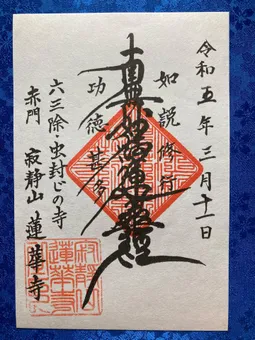 令和五年三月十一日
如説修行
南無妙法蓮華経
功徳甚多
六三除・虫封じの寺
赤門 寂静山 蓮華寺